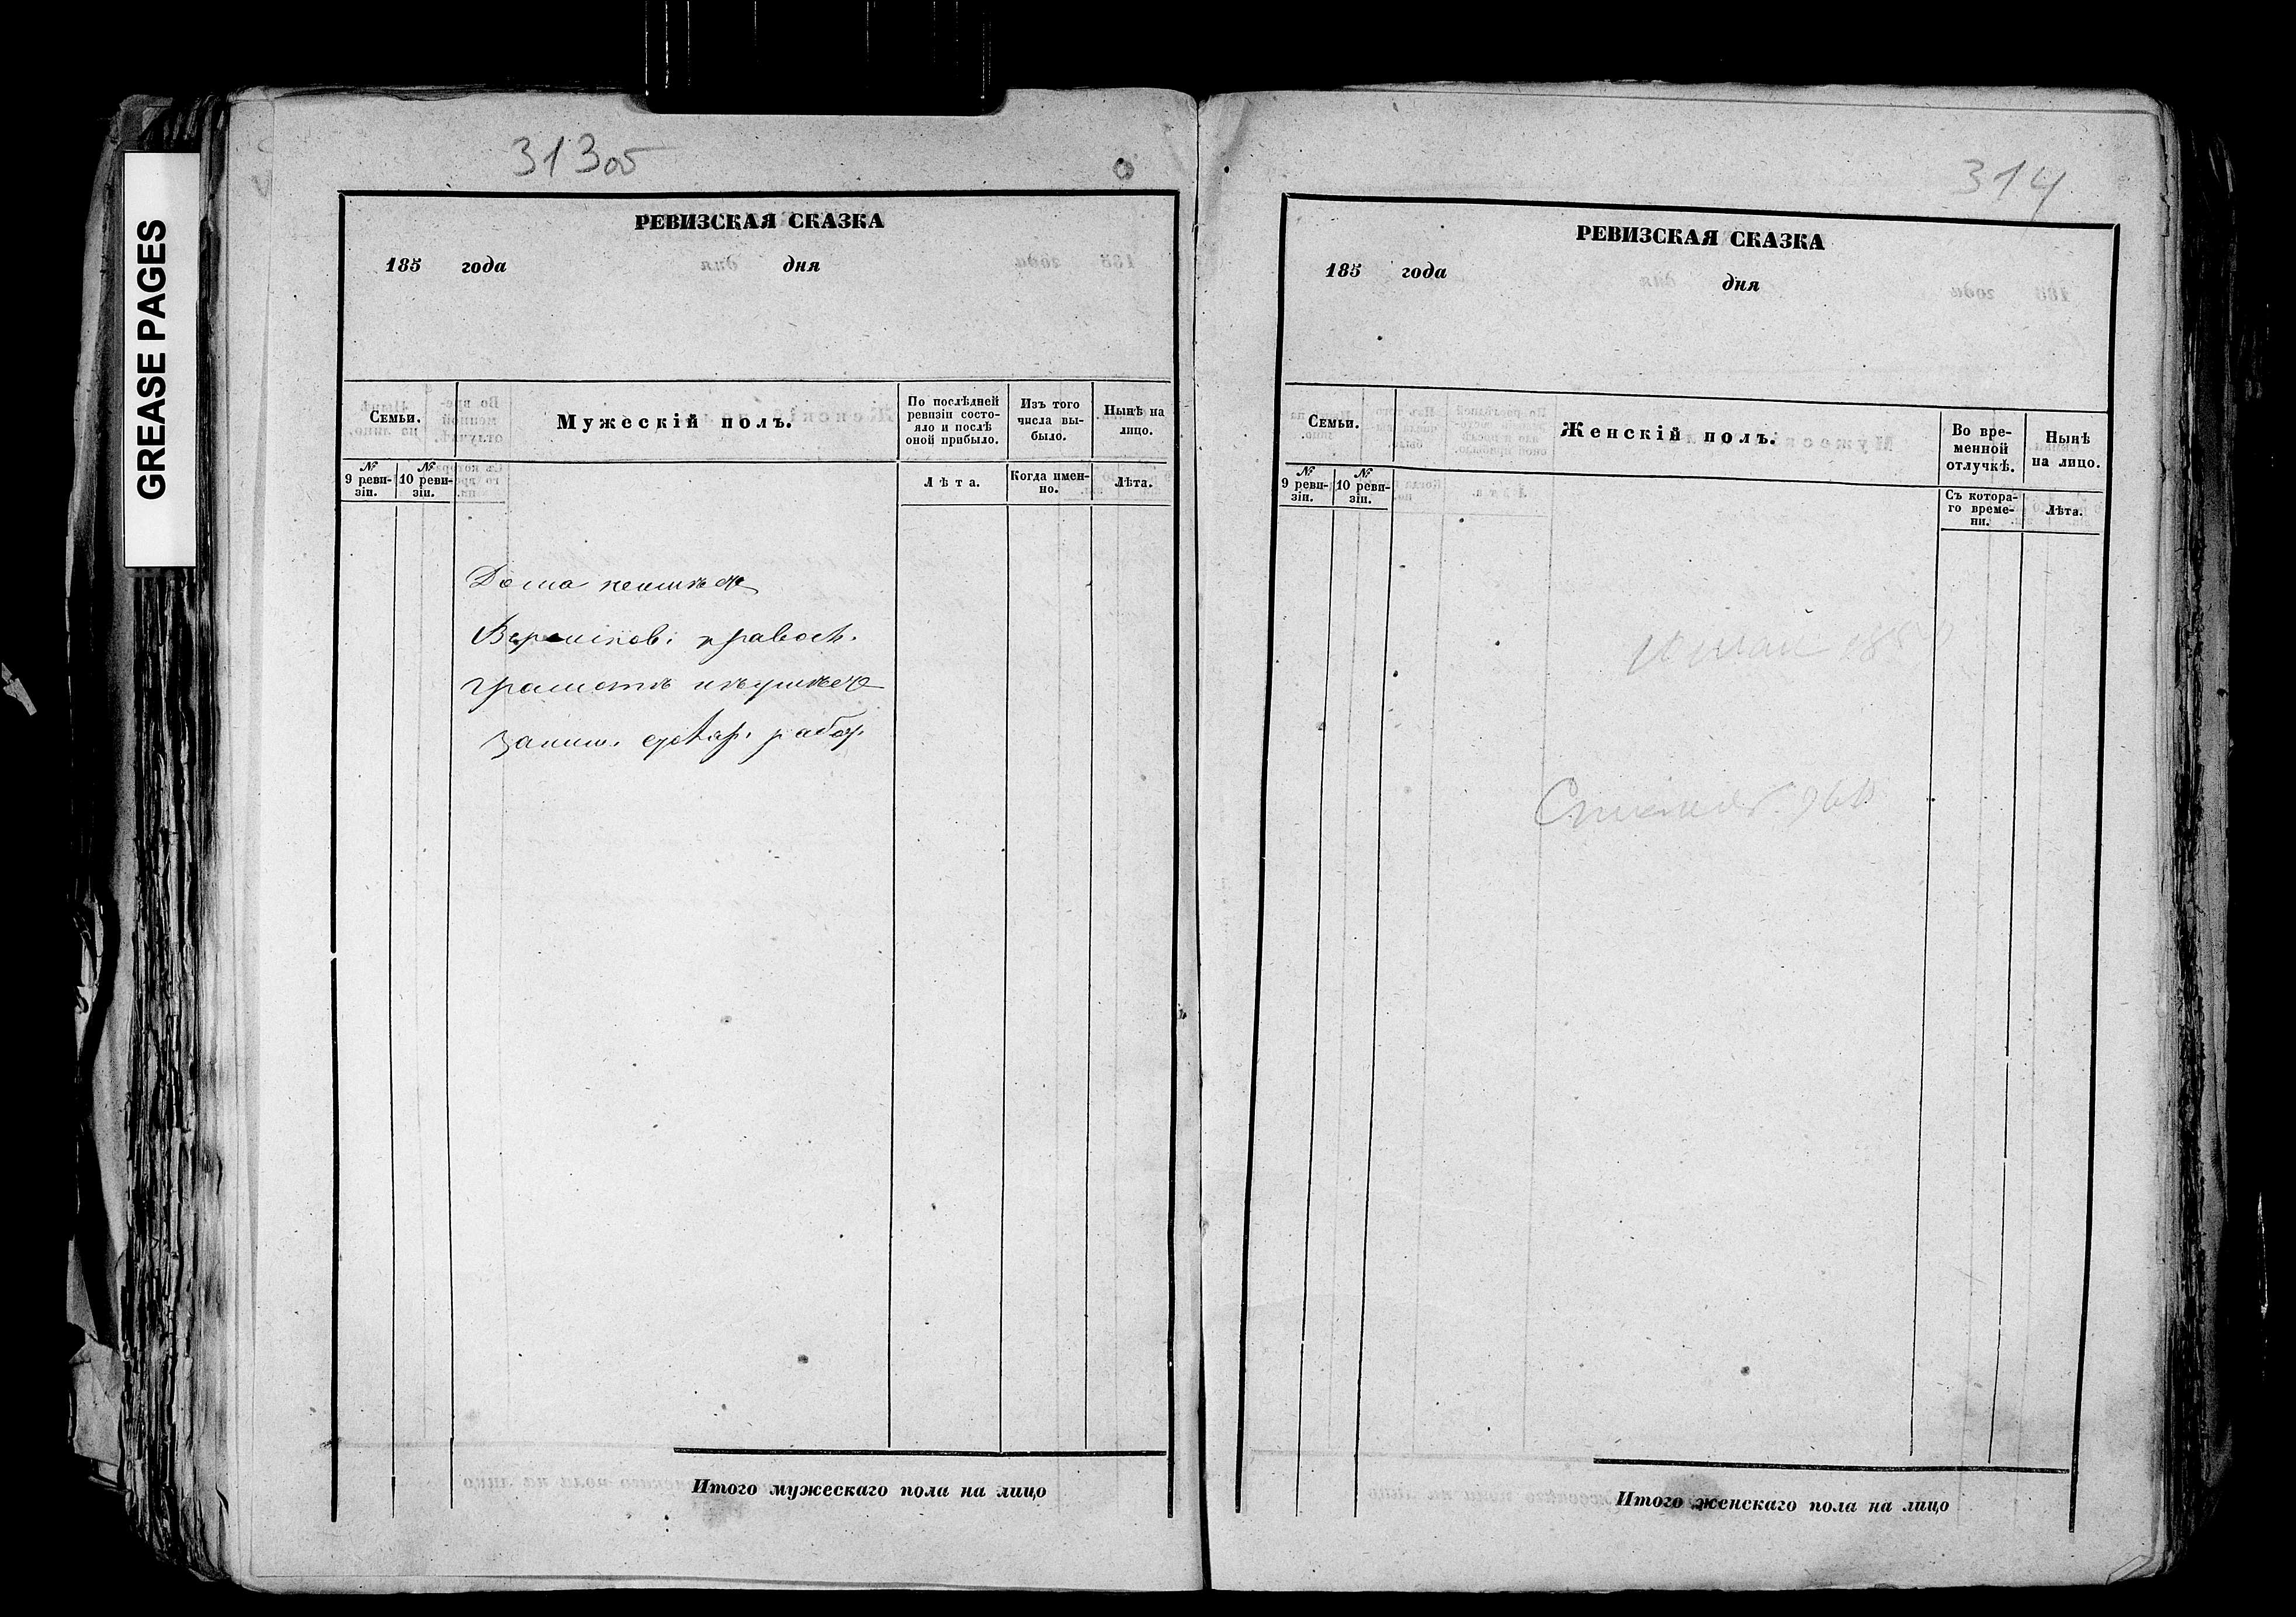 GREASE PAGES
313об
РЕВИЗСКАЯ СКАЗКА
185 года дня
Семьи.
№ 9 реви-
зіи.
№ 10 реви-
зіи.
Мужескій полъ.
По послѣдней
ревизіи состо-
яло и послѣ
оной прибыло.
Лѣта.
Изъ того
числа вы-
было.
Когда имен-
но.
Нынѣ на
лицо.
Лѣта.
Дома
правосл.
грамотѣ
Итого мужескаго пола на лицо
314
РЕВИЗСКАЯ СКАЗКА
185 года дня
Семьи.
№ 9 реви-
зіи.
№ 10 реви-
зіи.
Женскій полъ.
Во вре-
менной
отлучкѣ.
Съ котора-
го време-
ни.
Нынѣ
на лицо.
Лѣта.
Итого женскаго пола на лицо